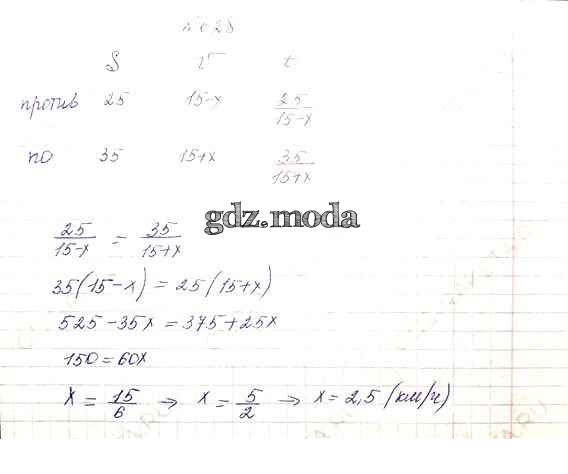 S v t
против 25 15-x 25/15-x
по 35 15+x 35/15+x
gdz.moda
25/15-x = 35/15+x
35(15-x) = 25(15+x)
525-35x = 375+25x
150 = 60x
x = 15/6 → x = 5/2 → x = 2,5 (км/ч)